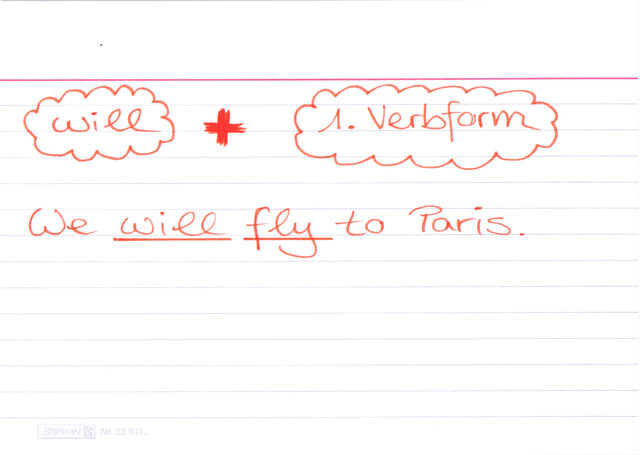 will + 1. Verbform
We will fly to Paris.
Nr. 22 501